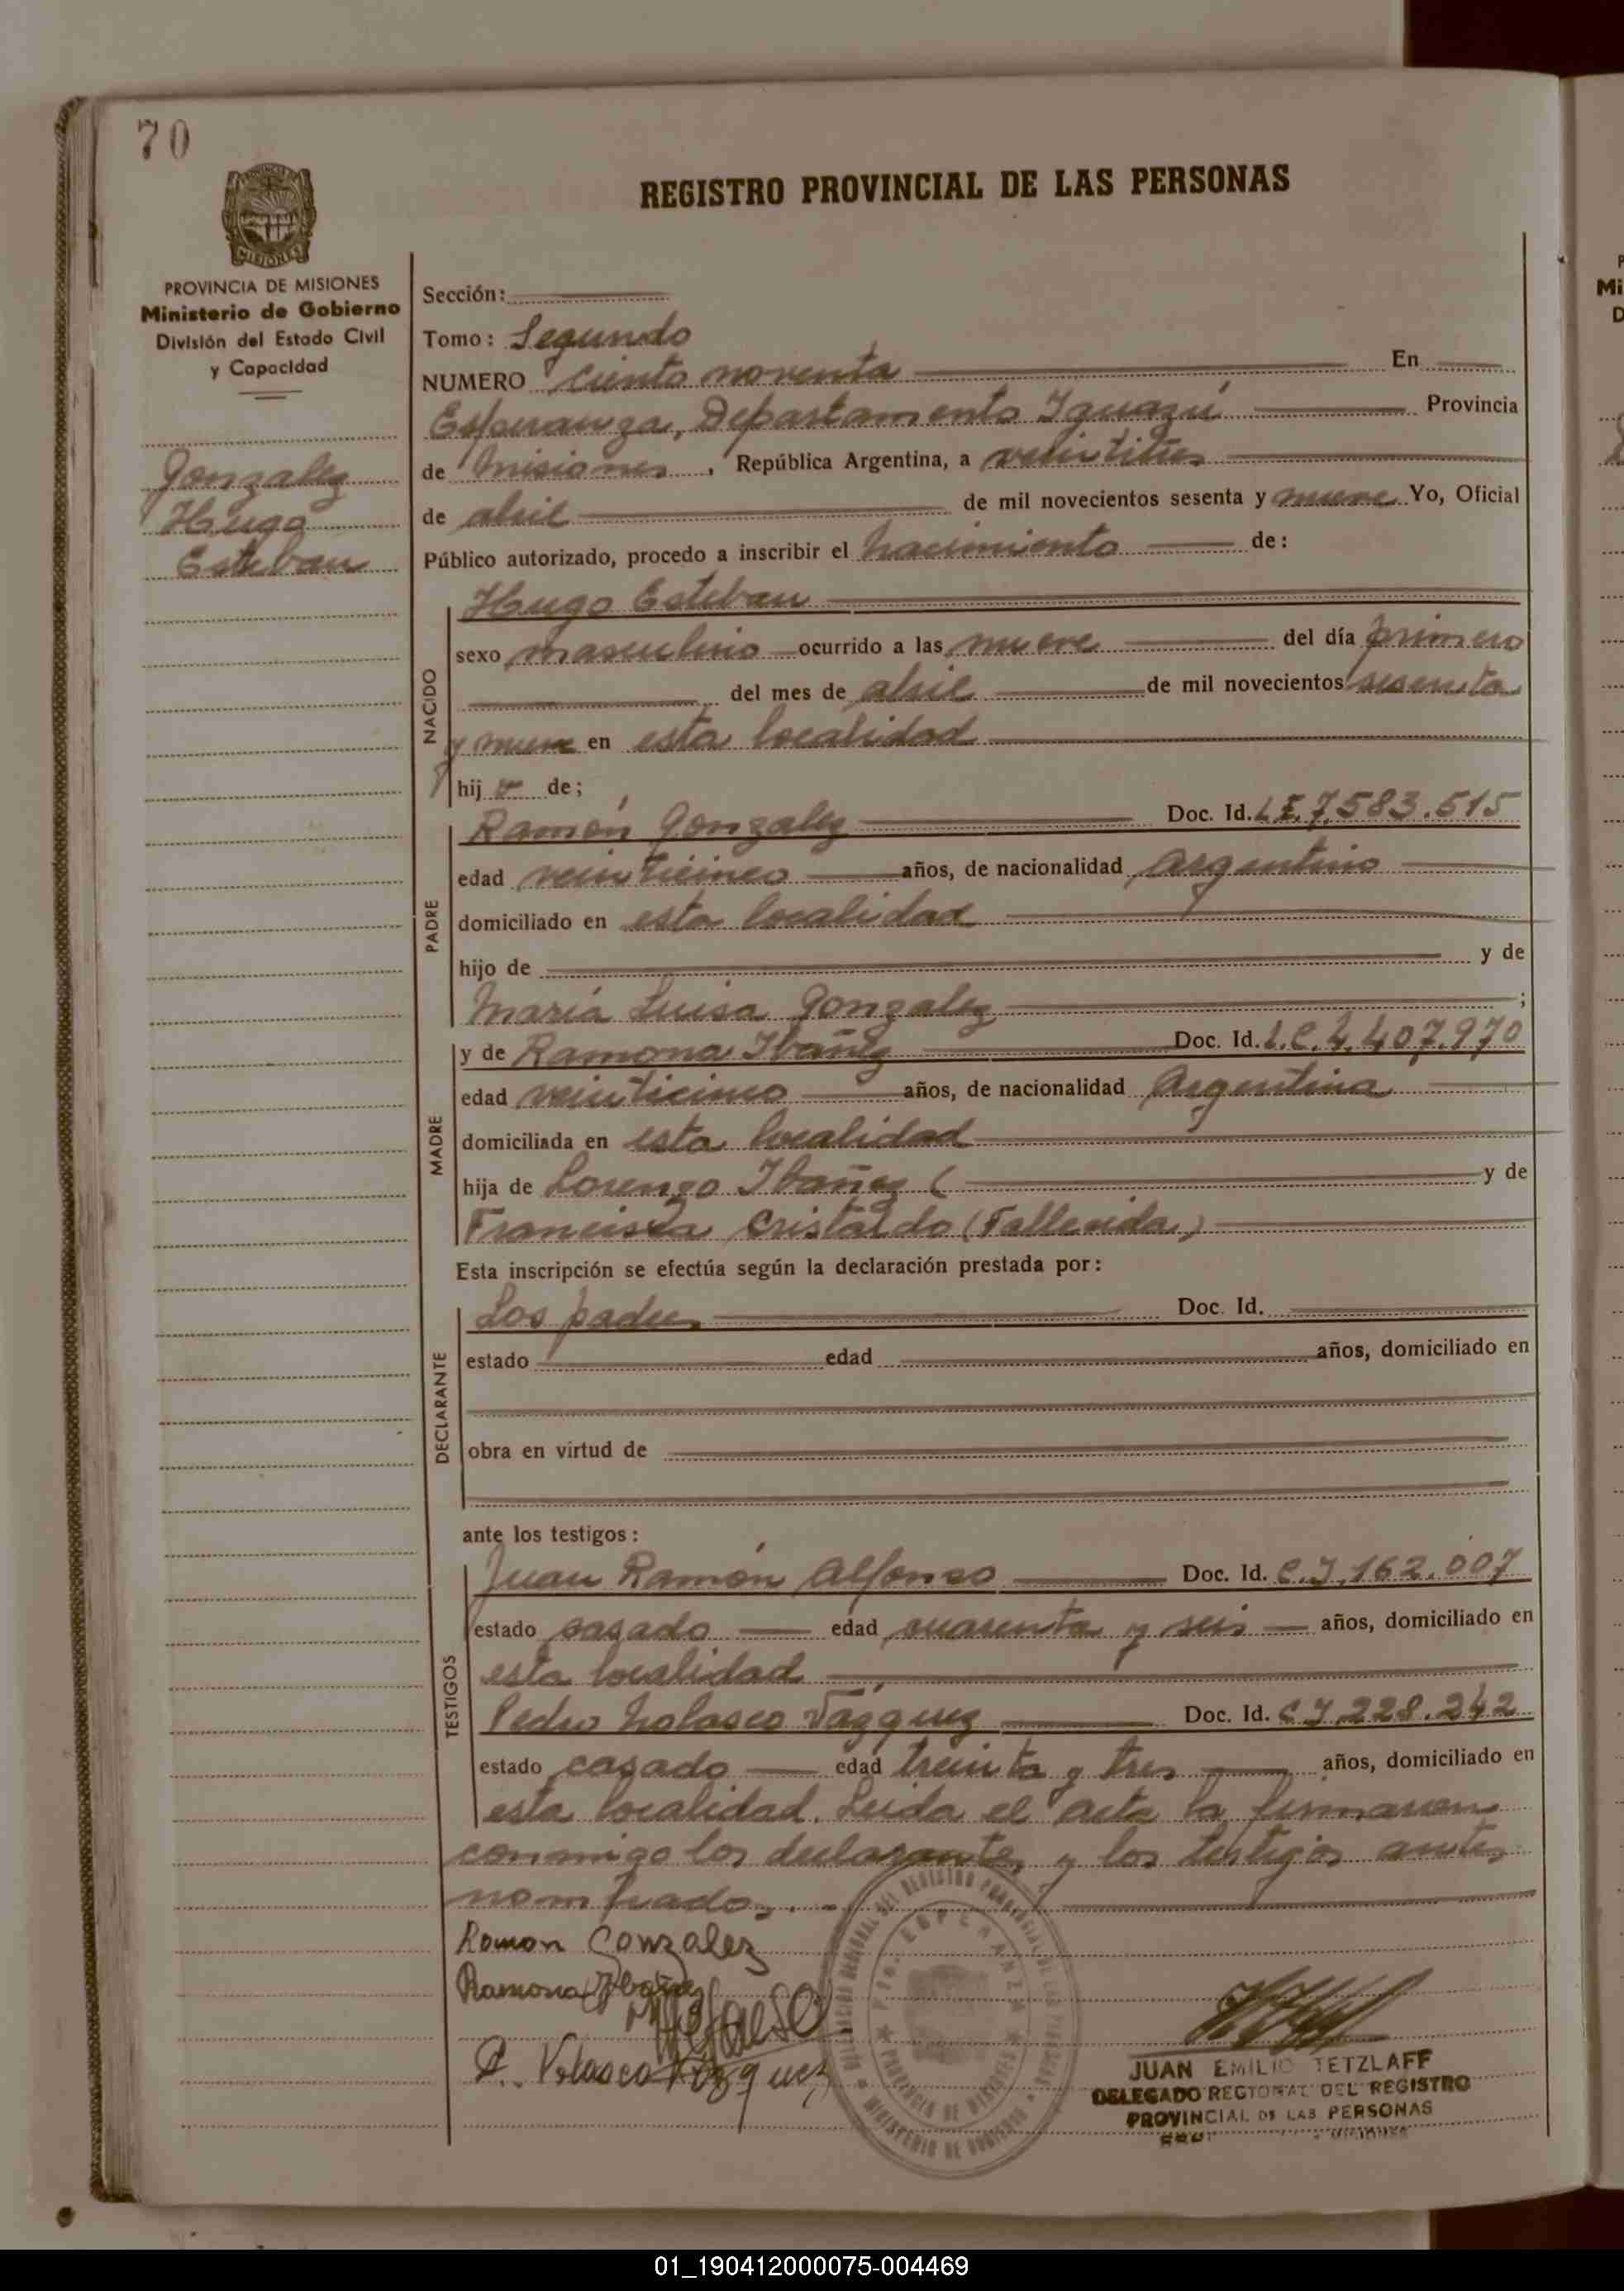 70
REGISTRO PROVINCIAL DE LAS PERSONAS
PROVINCIA DE MISIONES
Ministerio de Gobierno
División del Estado Civil
y Capacidad
Gonzalez
Hugo
Esteban
Sección:
Tomo: Segundo
NUMERO Ciento noventa En
Esperanza, Departamento Iguazú Provincia
de Misiones, República Argentina, a veintitres
de abril de mil novecientos sesenta y nueve Yo, Oficial
Público autorizado, procedo a inscribir el nacimiento de:
NACIDO
Hugo Esteban
sexo masculino ocurrido a las nueve del día primero
del mes de abril de mil novecientos sesenta
y nueve en esta localidad
hijo de;
PADRE
Ramón Gonzalez Doc. Id. L.E. 7.583.515
edad veinticinco años, de nacionalidad Argentino
domiciliado en esta localidad
hijo de y de
María Luisa Gonzalez ;
MADRE
y de Ramona Ibañez Doc. Id. L.C. 4.407.970
edad veinticinco años, de nacionalidad Argentina
domiciliada en esta localidad
hija de Lorenzo Ibañez ( y de
Francisca Cristaldo (Fallecida)
Esta inscripción se efectúa según la declaración prestada por:
DECLARANTE
Los padres Doc. Id.
estado edad años, domiciliado en
obra en virtud de
ante los testigos:
TESTIGOS
Juan Ramón Alfonso Doc. Id. C.I. 162.007
estado casado edad cuarenta y seis años, domiciliado en
esta localidad
Pedro Nolasco Vázquez Doc. Id. C.I. 228.242
estado casado edad treinta y tres años, domiciliado en
esta localidad. Leida el acta la firmaron
conmigo los declarantes y los testigos antes
nombrados.-
Ramon Gonzalez
Ramona Ibañez
P. Nolasco Vázquez
PROVINCIA DE MISIONES
MINISTERIO DE GOBIERNO
JUAN EMILIO TETZLAFF
DELEGADO REGIONAL DEL REGISTRO
PROVINCIAL DE LAS PERSONAS
MISIONES
01_190412000075-004469